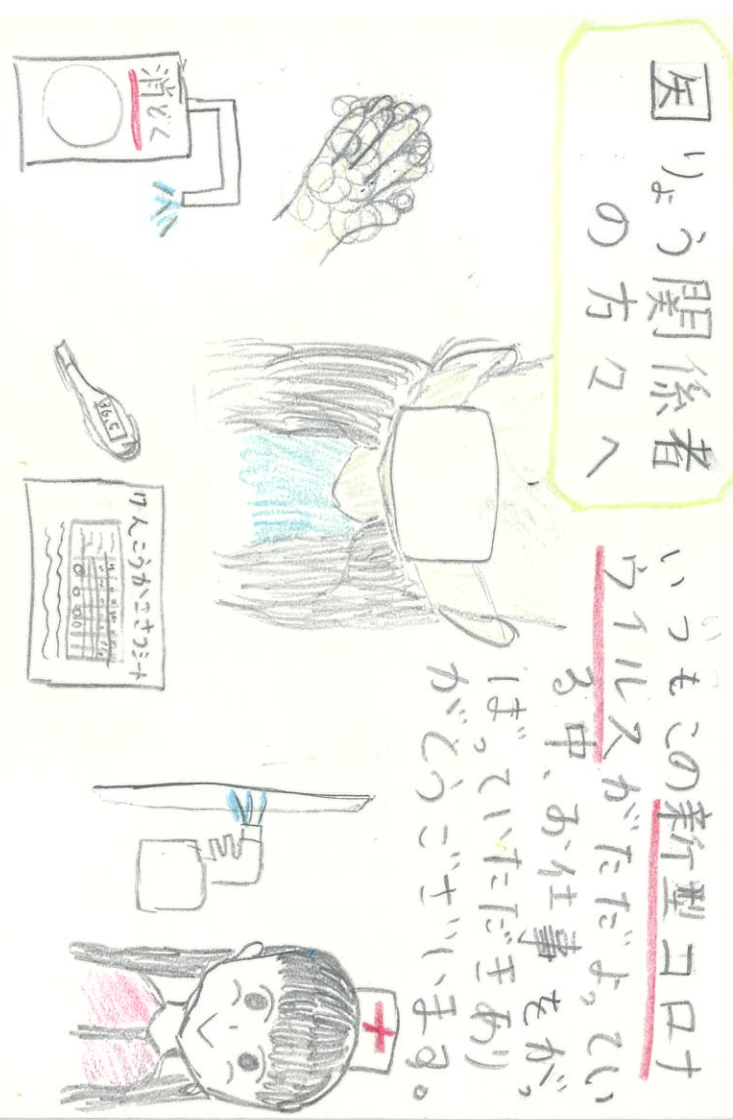 医りょう関係者
の方々へ
いつもこの新型コロナ
ウイルスがただよってい
る中、お仕事をがん
ばっていただきあり
がとうございます。
消どく
36.5
けんこうかんさつシート